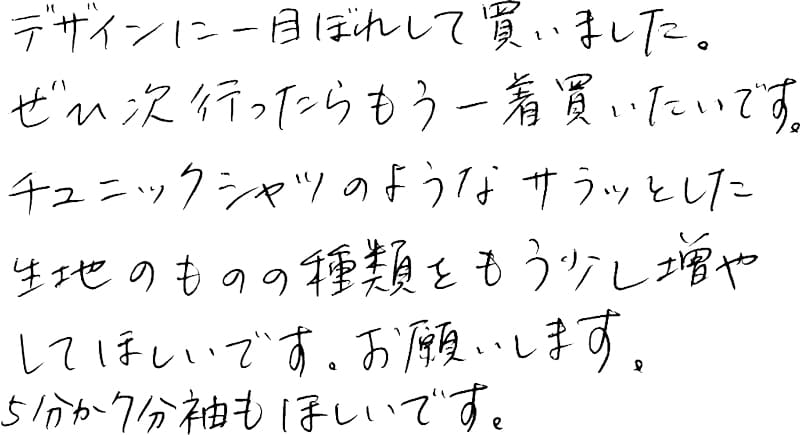 デザインに一目ぼれして買いました。
ぜひ次行ったらもう一着買いたいです。
チュニックシャツのようなサラッとした
生地のものの種類をもう少し増や
してほしいです。お願いします。
5分か7分袖もほしいです。